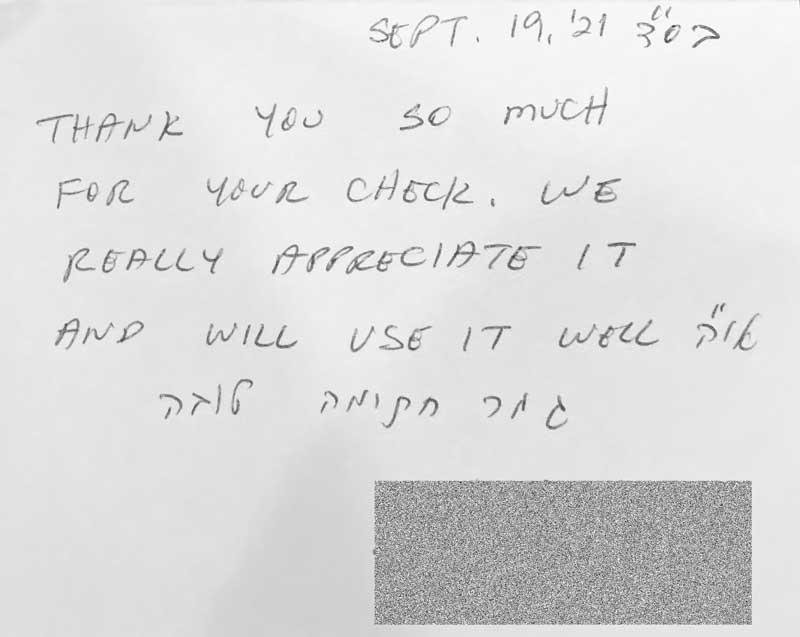 SEPT. 19, '21 בס"ד
THANK YOU SO MUCH
FOR YOUR CHECK. WE
REALLY APPRECIATE IT
AND WILL USE IT WELL אי"ה
גמר חתימה טובה